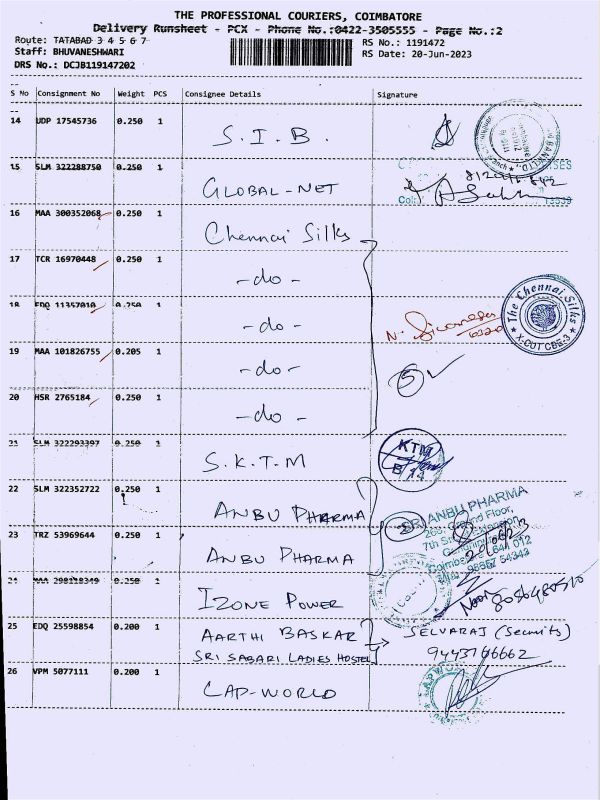 THE PROFESSIONAL COURIERS, COIMBATORE
Delivery Runsheet - PCX - Phone No.:0422-3505555 - Page No.:2
Route: TATABAD 3 4 5 6 7
RS No.: 1191472
Staff: BHUVANESHWARI
RS Date: 20-Jun-2023
DRS No.: DCJB119147202
S No Consignment No Weight PCS Consignee Details Signature
14 UDP 17545736 0.250 1 S.I.B.
15 SLM 322288750 0.250 1 GLOBAL-NET
16 MAA 300352068 0.250 1 Chennai Silks
17 TCR 16970448 0.250 1 -do-
18 EDQ 11357010 0.250 1 -do-
The Chennai Silks
X-CUT CBE-3
19 MAA 101826755 0.205 1 -do- 5
20 HSR 2765184 0.250 1 -do-
21 SLM 322293397 0.250 1 S.K.T.M
KTM
22 SLM 322352722 0.250 1 ANBU PHARMA
SRI ANBU PHARMA
2
23 TRZ 53969644 0.250 1 ANBU PHARMA
24 MAA 298118349 0.250 1 IZONE POWER
25 EDQ 25598854 0.200 1 AARTHI BASKAR
SRI SABARI LADIES HOSTEL
SELVARAJ (Security)
9443766662
26 VPM 5077111 0.200 1 CAP-WORLD